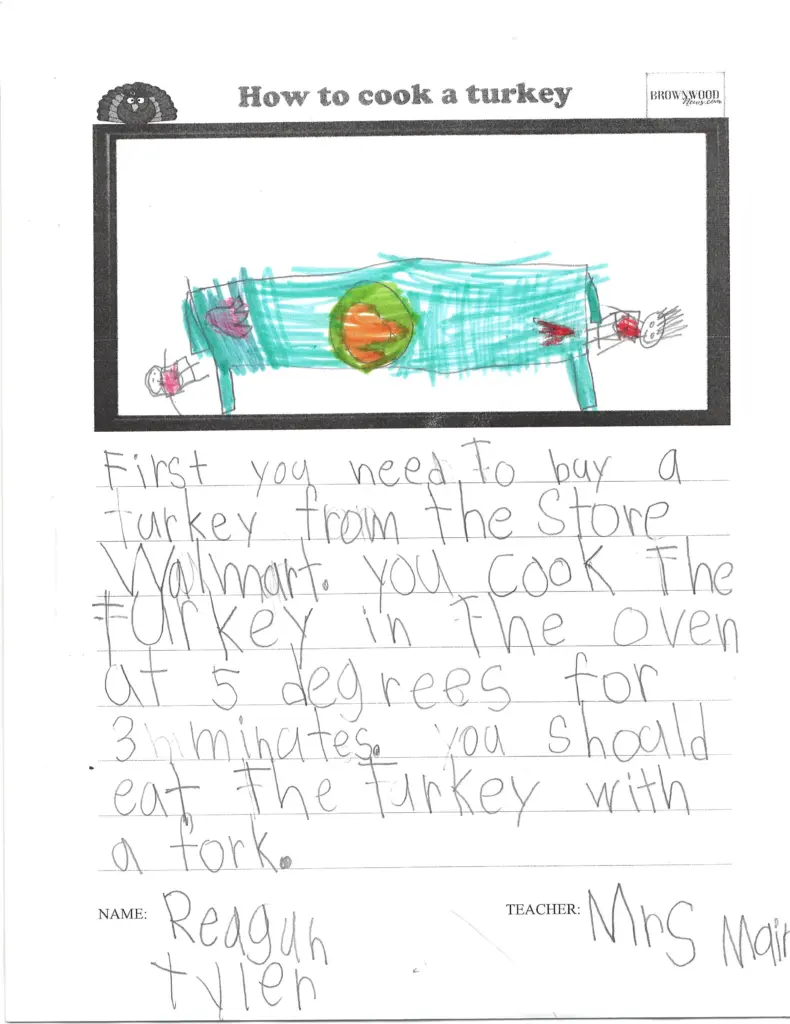 How to cook a turkey
BROWNWOOD
News.com
First you need To buy a
turkey from the Store
Walmart. you cook The
turkey in The oven
at 5 degrees for
3 minutes. you should
eat The turkey with
a fork.
NAME: Reagan
tyler
TEACHER: Mrs